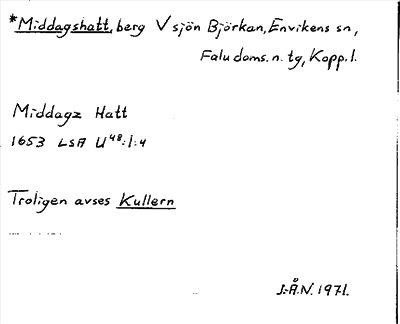 *Middagshatt, berg V sjön Björkan, Envikens sn,
Falu doms. n. tg, Kopp. l.
Middagz Hatt
1653 LSA U48:1:4
Troligen avses Kullern
J.Å.N. 1971.